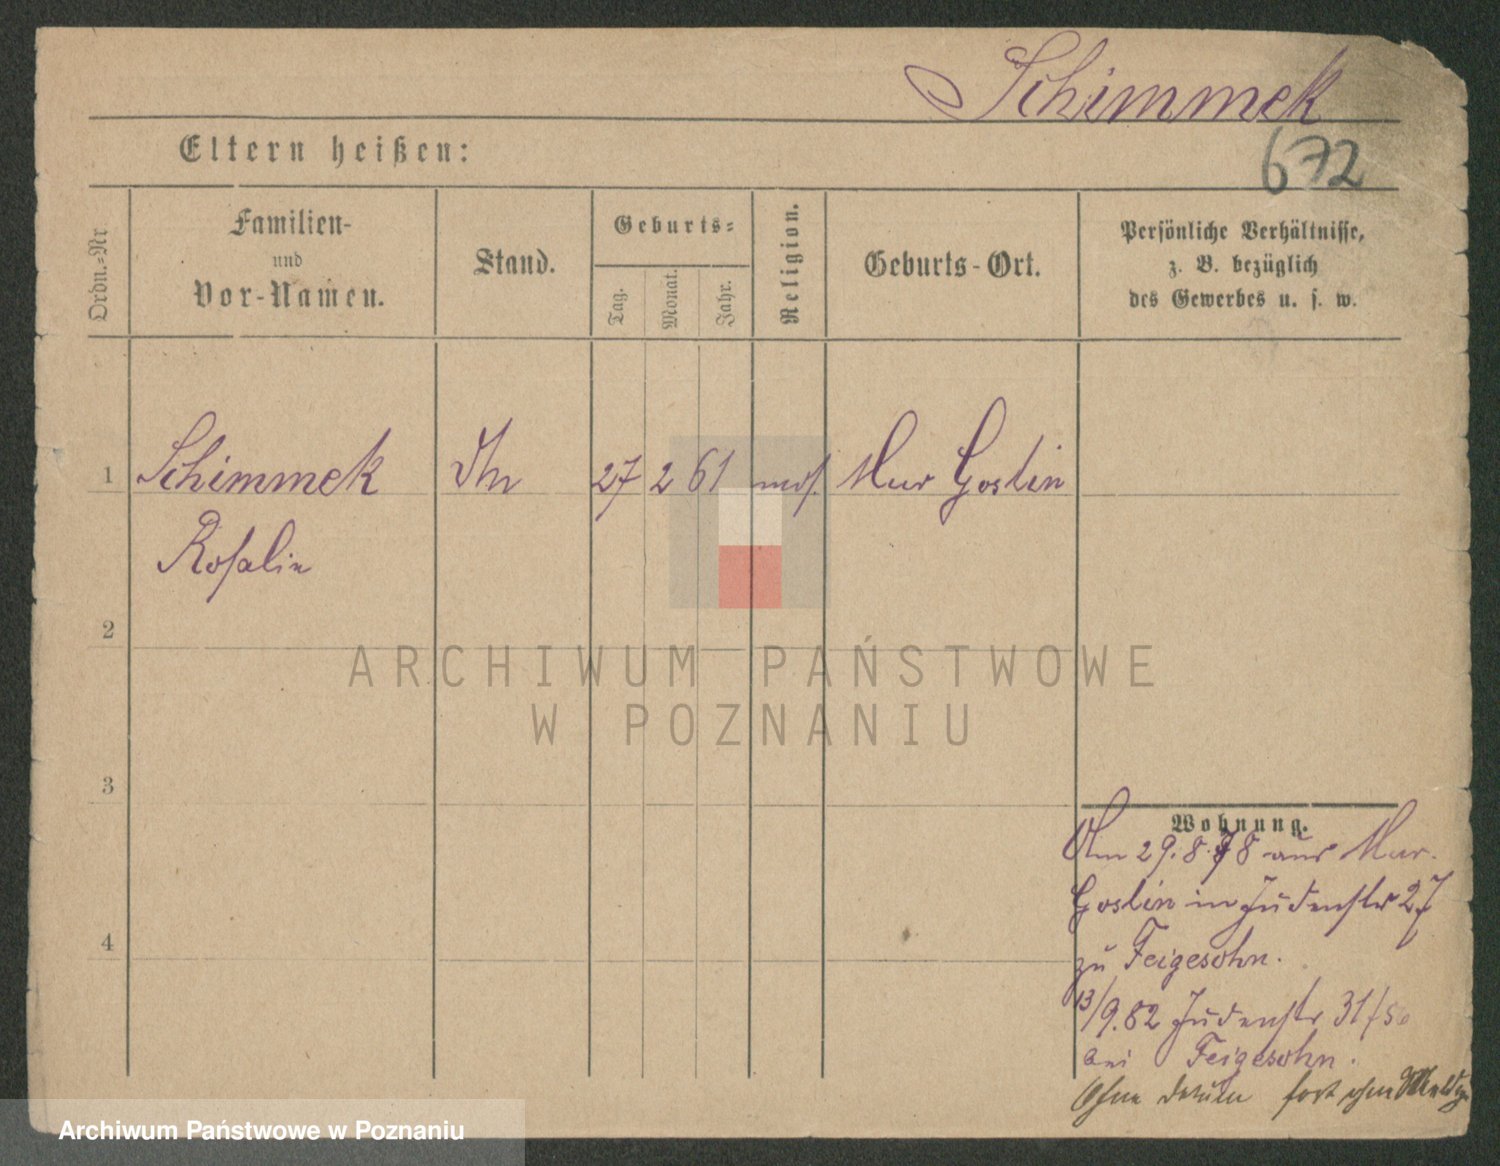 Schimmek
672
Eltern heißen:
Ordn.-Nr
Familien-
und
Vor-Namen.
Stand.
Geburts-
Tag.
Monat.
Jahr.
Religion.
Geburts-Ort.
Persönliche Verhältnisse,
z. B. bezüglich
des Gewerbes u. s. w.
1
Schimmek
27 2 61 mos. Mur Goslin
Rosalie
2
ARCHIWUM PAŃSTWOWE
W POZNANIU
3
Wohnung.
Am 29.8.78 aus Mur.
Goslin in Judenstr 27
zu Feigesohn.
4
13/9.82 Judenstr 31/
bei Feigesohn.
Ohne Datum fort ohne
Archiwum Państwowe w Poznaniu